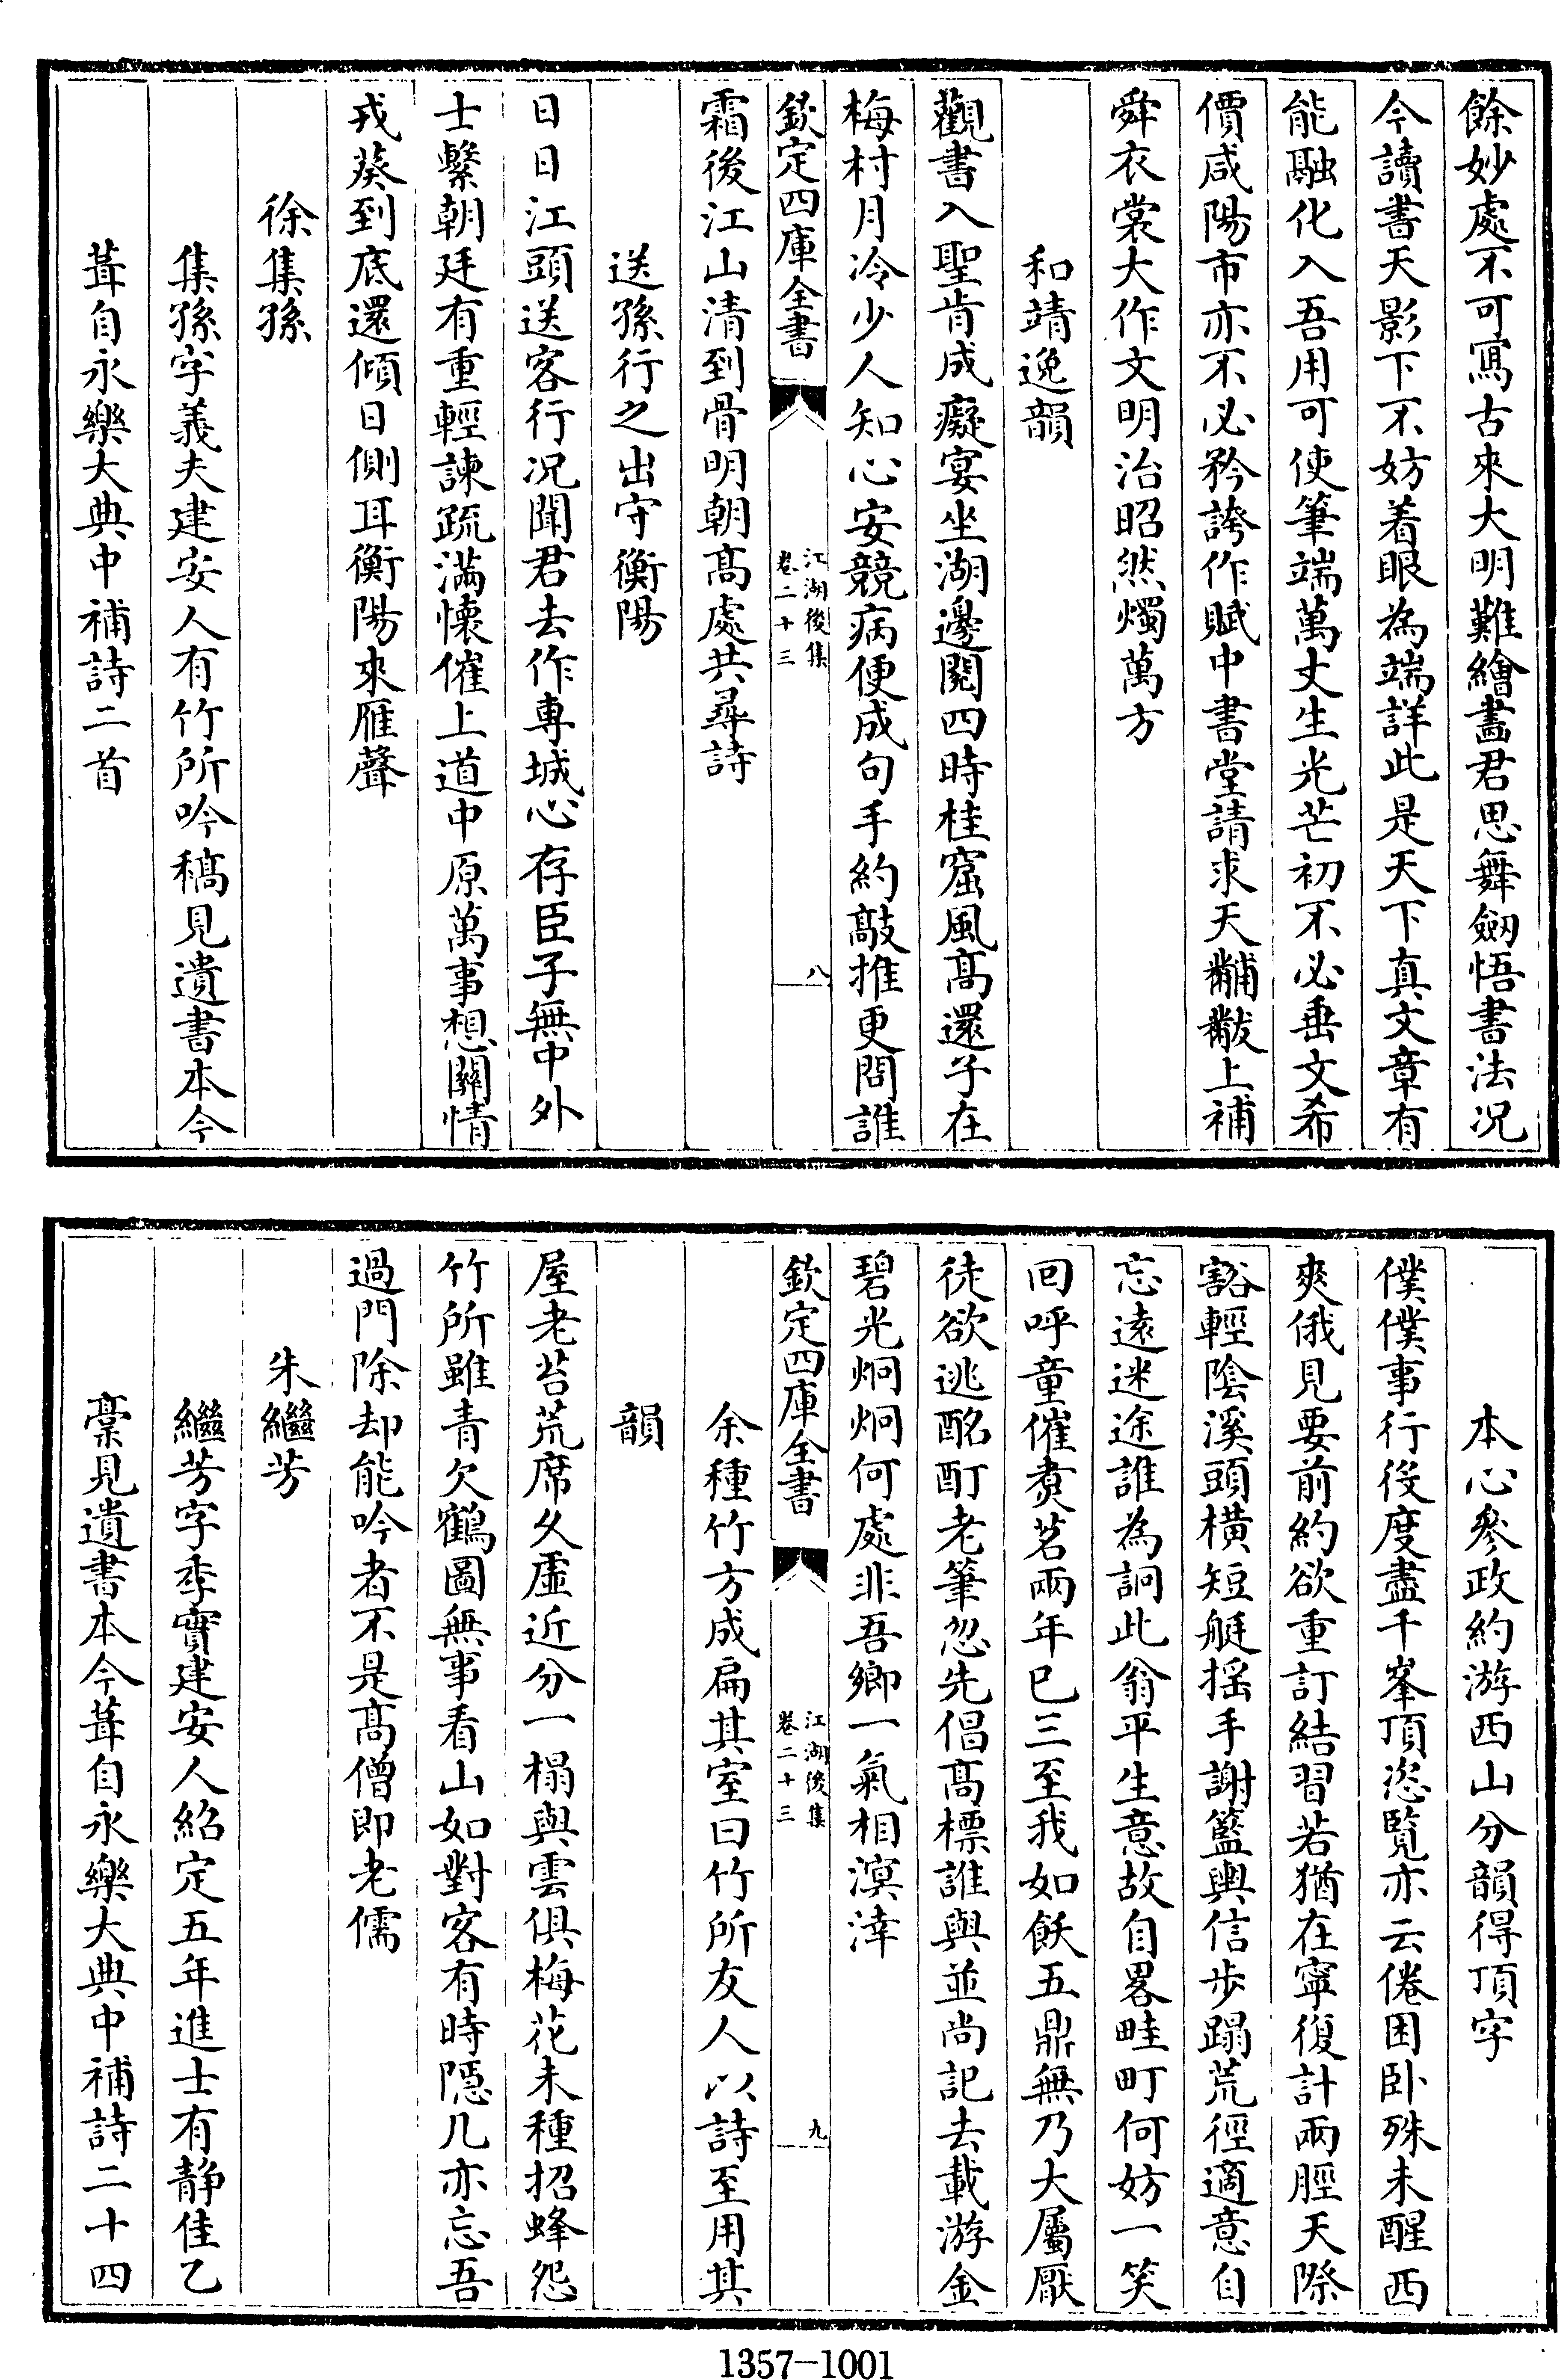 餘妙處不可寫古來大明難繪畵君思舞劒悟書法况
今讀書天影下不妨着眼為端詳此是天下真文章有
能融化入吾用可使筆端萬丈生光芒初不必垂文希
價咸陽市亦不必矜誇作賦中書堂請求天黼黻上補
舜衣裳大作文明治昭然燭萬方
和靖逸韻
觀書入聖肯成癡宴坐湖邊閱四時桂窟風髙還子在
梅村月冷少人知心安競病便成句手約敲推更問誰
欽定四庫全書
江湖後集
卷二十三
八
霜後江山清到骨明朝髙處共尋詩
送孫行之出守衡陽
日日江頭送客行况聞君去作專城心存臣子無中外
士繫朝廷有重輕諫疏滿懷催上道中原萬事想關情
戎葵到底還傾日側耳衡陽來雁聲
徐集孫
集孫字義夫建安人有竹所吟稿見遺書本今
葺自永樂大典中補詩二首
本心參政約游西山分韻得頂字
僕僕事行役度盡千峯頂恣覽亦云倦困卧殊未醒西
爽俄見要前約欲重訂結習若猶在寧復計兩脛天際
豁輕陰溪頭横短艇揺手謝籃輿信步蹋荒徑適意自
忘遠迷途誰為詗此翁平生意故自畧畦町何妨一笑
回呼童催煑茗兩年已三至我如飫五鼎無乃大屬厭
徒欲逃酩酊老筆忽先倡髙標誰與並尚記去載游金
碧光炯炯何處非吾鄉一氣相溟涬
欽定四庫全書
江湖後集
卷二十三
九
余種竹方成扁其室曰竹所友人以詩至用其
韻
屋老苔荒席久虛近分一榻與雲俱梅花未種招蜂怨
竹所雖青欠鶴圖無事看山如對客有時隱几亦忘吾
過門除却能吟者不是髙僧即老儒
朱繼芳
繼芳字季實建安人紹定五年進士有靜佳乙
稾見遺書本今葺自永樂大典中補詩二十四
1357-1001